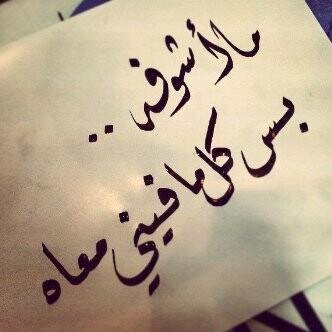 ما أشوفه ..
بس كل ما فيني معاه